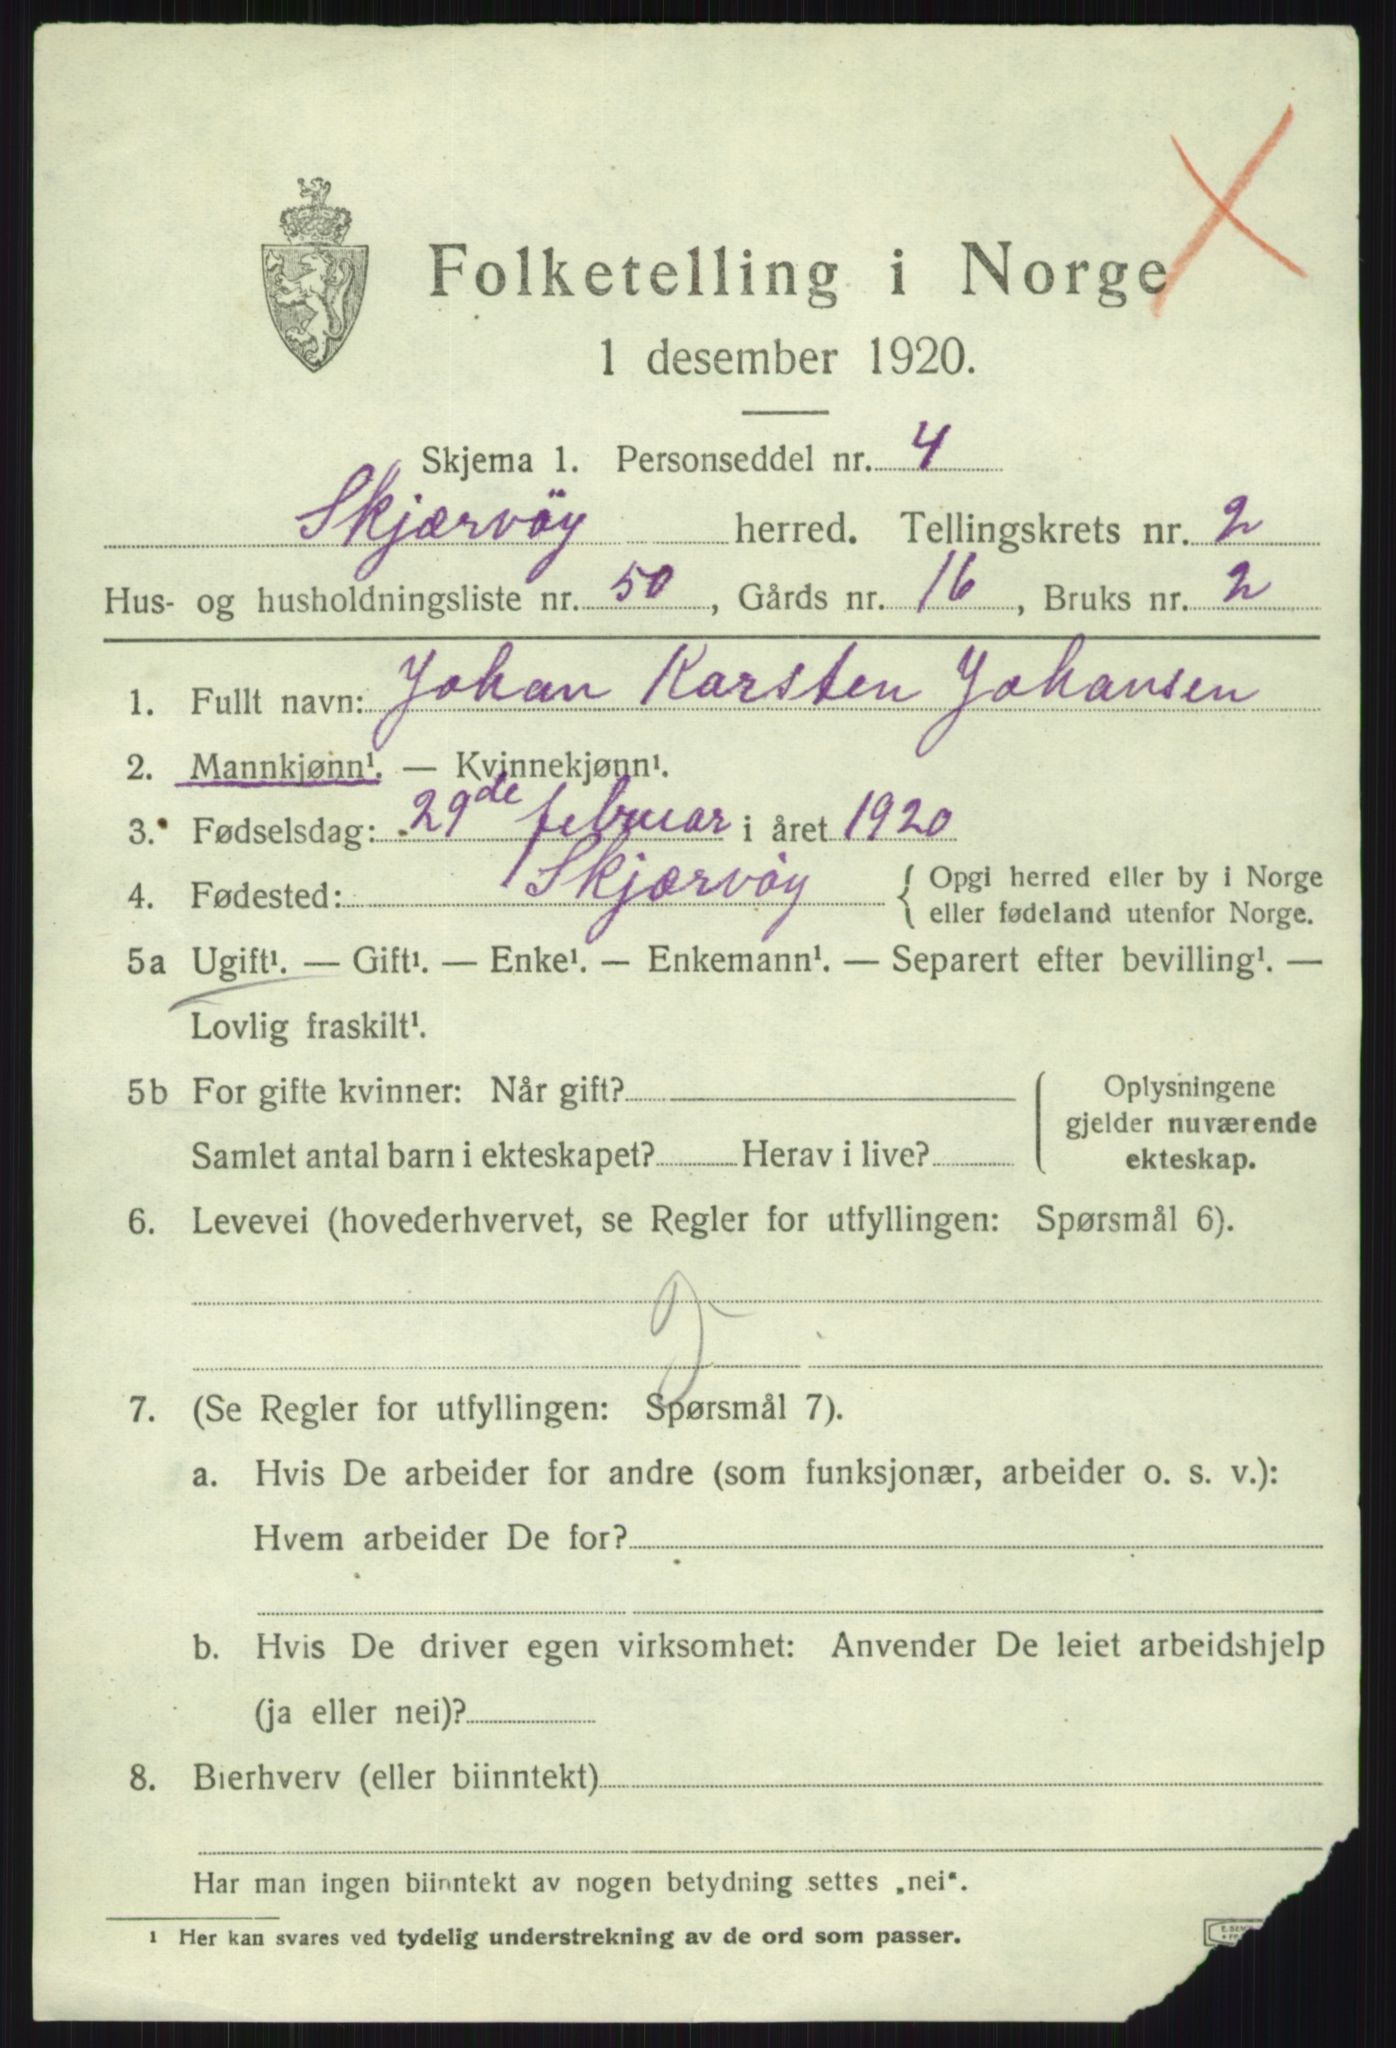 Folketelling i Norge
1 desember 1920.
Skjema 1. Personseddel nr. 4
Skjærvöy herred. Tellingskrets nr. 2
Hus- og husholdningsliste nr. 50, Gårds nr. 16, Bruks nr. 2
1. Fullt navn: Johan Karsten Johansen
2. Mannkjønn¹. — Kvinnekjønn¹.
3. Fødselsdag: 29de februar i året 1920
4. Fødested: Skjærvöy { Opgi herred eller by i Norge
eller fødeland utenfor Norge.
5a Ugift¹. — Gift¹. — Enke¹. — Enkemann¹. — Separert efter bevilling¹. —
Lovlig fraskilt¹.
5b For gifte kvinner: Når gift?
Samlet antal barn i ekteskapet? Herav i live?
Oplysningene
gjelder nuværende
ekteskap.
6. Levevei (hovederhvervet, se Regler for utfyllingen: Spørsmål 6).
7. (Se Regler for utfyllingen: Spørsmål 7).
a. Hvis De arbeider for andre (som funksjonær, arbeider o. s. v.):
Hvem arbeider De for?
b. Hvis De driver egen virksomhet: Anvender De leiet arbeidshjelp
(ja eller nei)?
8. Bierhverv (eller biinntekt)
Har man ingen biinntekt av nogen betydning settes „nei“.
1 Her kan svares ved tydelig understrekning av de ord som passer.